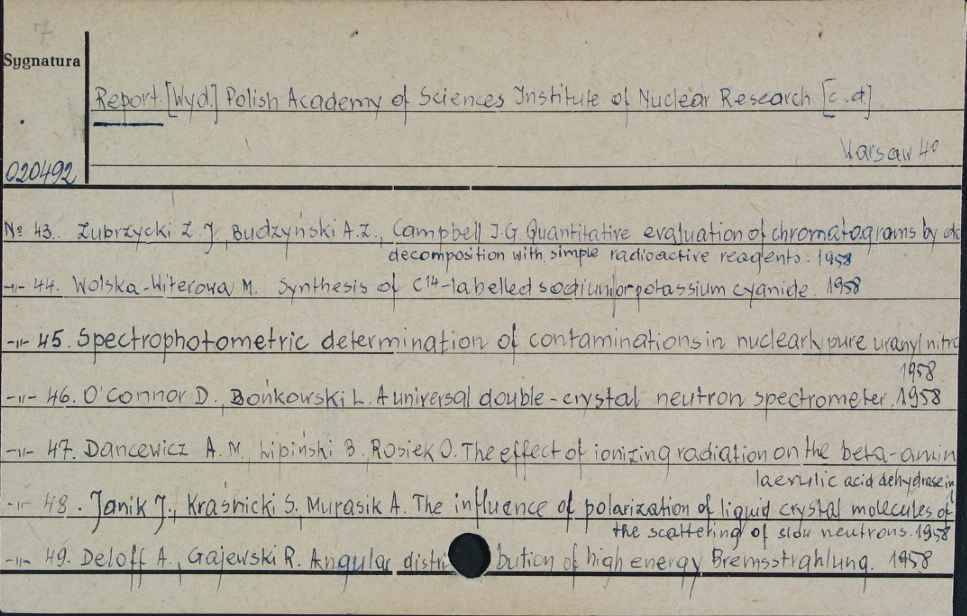 7
Sygnatura
Report [Wyd.] Polish Academy of Sciences Institute of Nuclear Research [c.d.]
Warsaw 4°
020492
№ 43. Zubrzycki Z. J., Budzyński A.Z., Campbell J.G. Quantitative evaluation of chromatograms by
decomposition with simple radioactive reagents. 1958
-"- 44. Wolska-Witerowa M. Synthesis of C14-labelled sodium or potassium cyanide. 1958
-"- 45. Spectrophotometric determination of contaminations in nuclearly pure uranyl nitra
1958
-"- 46. O'Connor D., Bońkowski L. A universal double-crystal neutron spectrometer. 1958
-"- 47. Dancewicz A. M. Lipiński B. Rosiek O. The effect of ionizing radiation on the beta-amin
laevulic acid dehydrase in
-"- 48. Janik J., Kraśnicki S. Murasik A. The influence of polarization of liquid crystal molecules of
the scattering of slow neutrons. 1958
-"- 49. Deloff A., Gajewski R. Angular distribution of high energy Bremsstrahlung. 1958